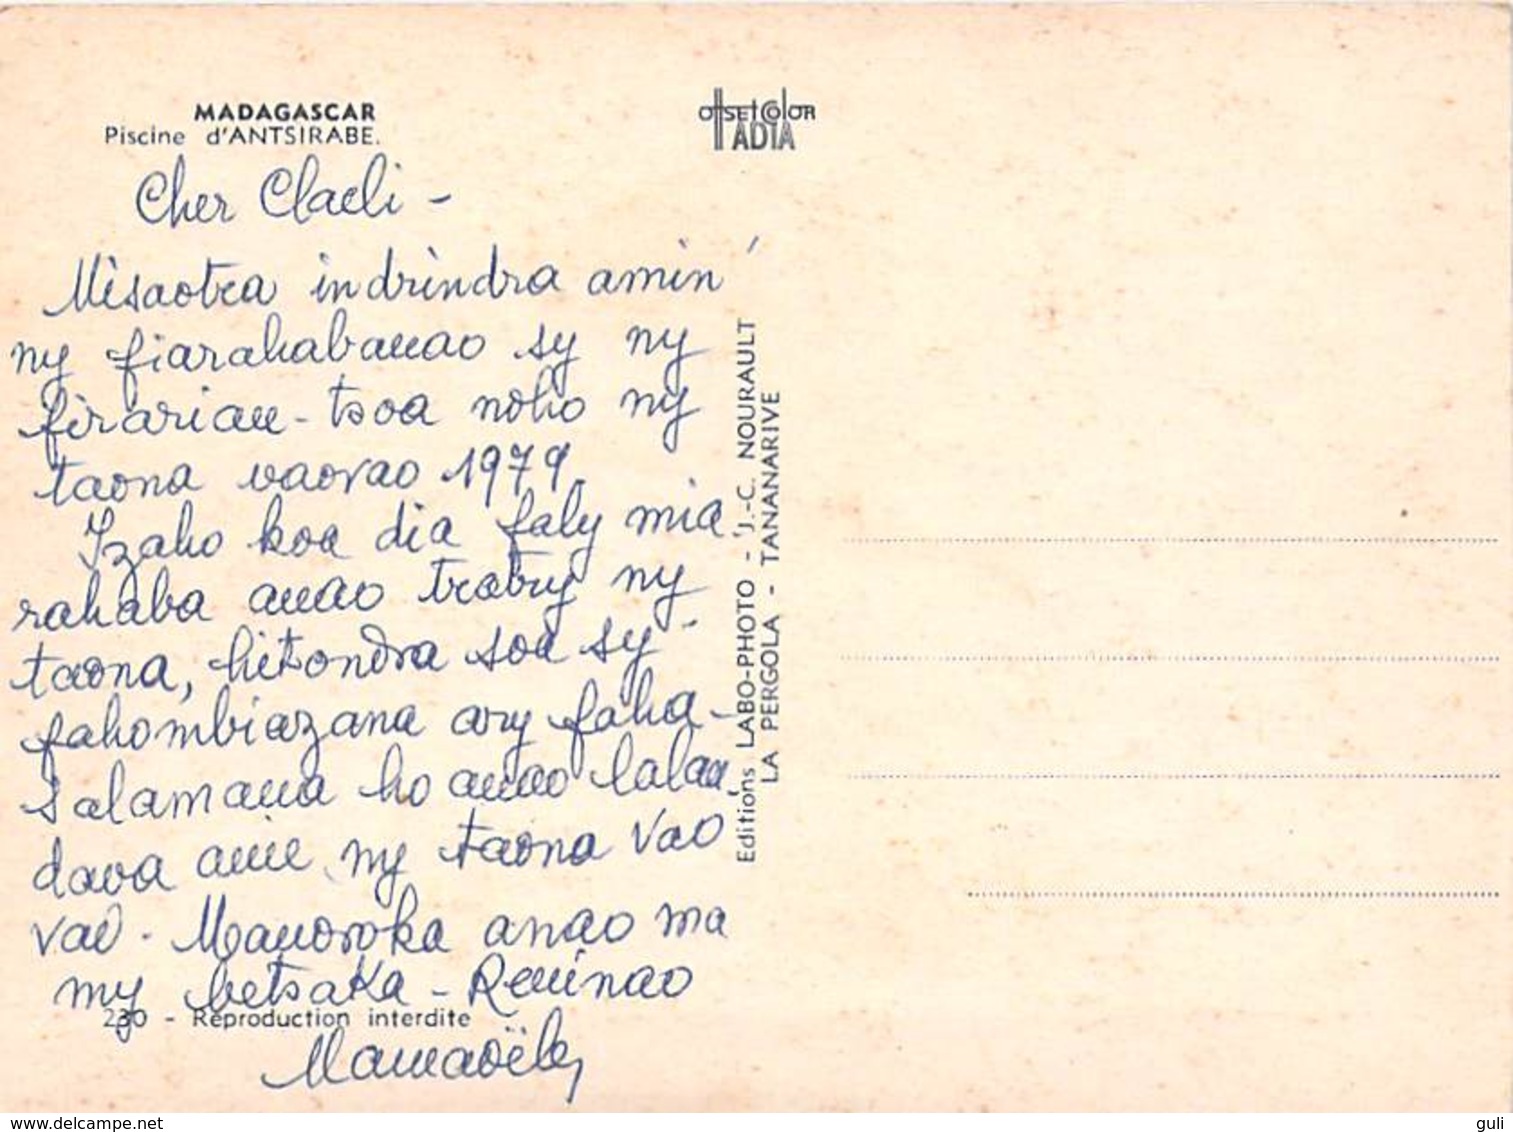 MADAGASCAR
Piscine d'ANTSIRABE.
offsetcolor
ADIA
Cher Claeli -
Misaotra indrindra amin'
ny fiarahabanao sy ny
firarian-tsoa noho ny
taona vaovao 1979.
Izaho koa dia faly mia
rahaba anao tratry ny
taona, hitondra soa sy
fahombiazana ary faha-
salamana ho anao lalan
dava anie ny taona vao
vao - Manoroka anao ma
my betsaka - Reninao
230 - Reproduction interdite
Editions LABO-PHOTO - J.-C. NOURAULT
LA PERGOLA - TANANARIVE
www.delcampe.net
guli